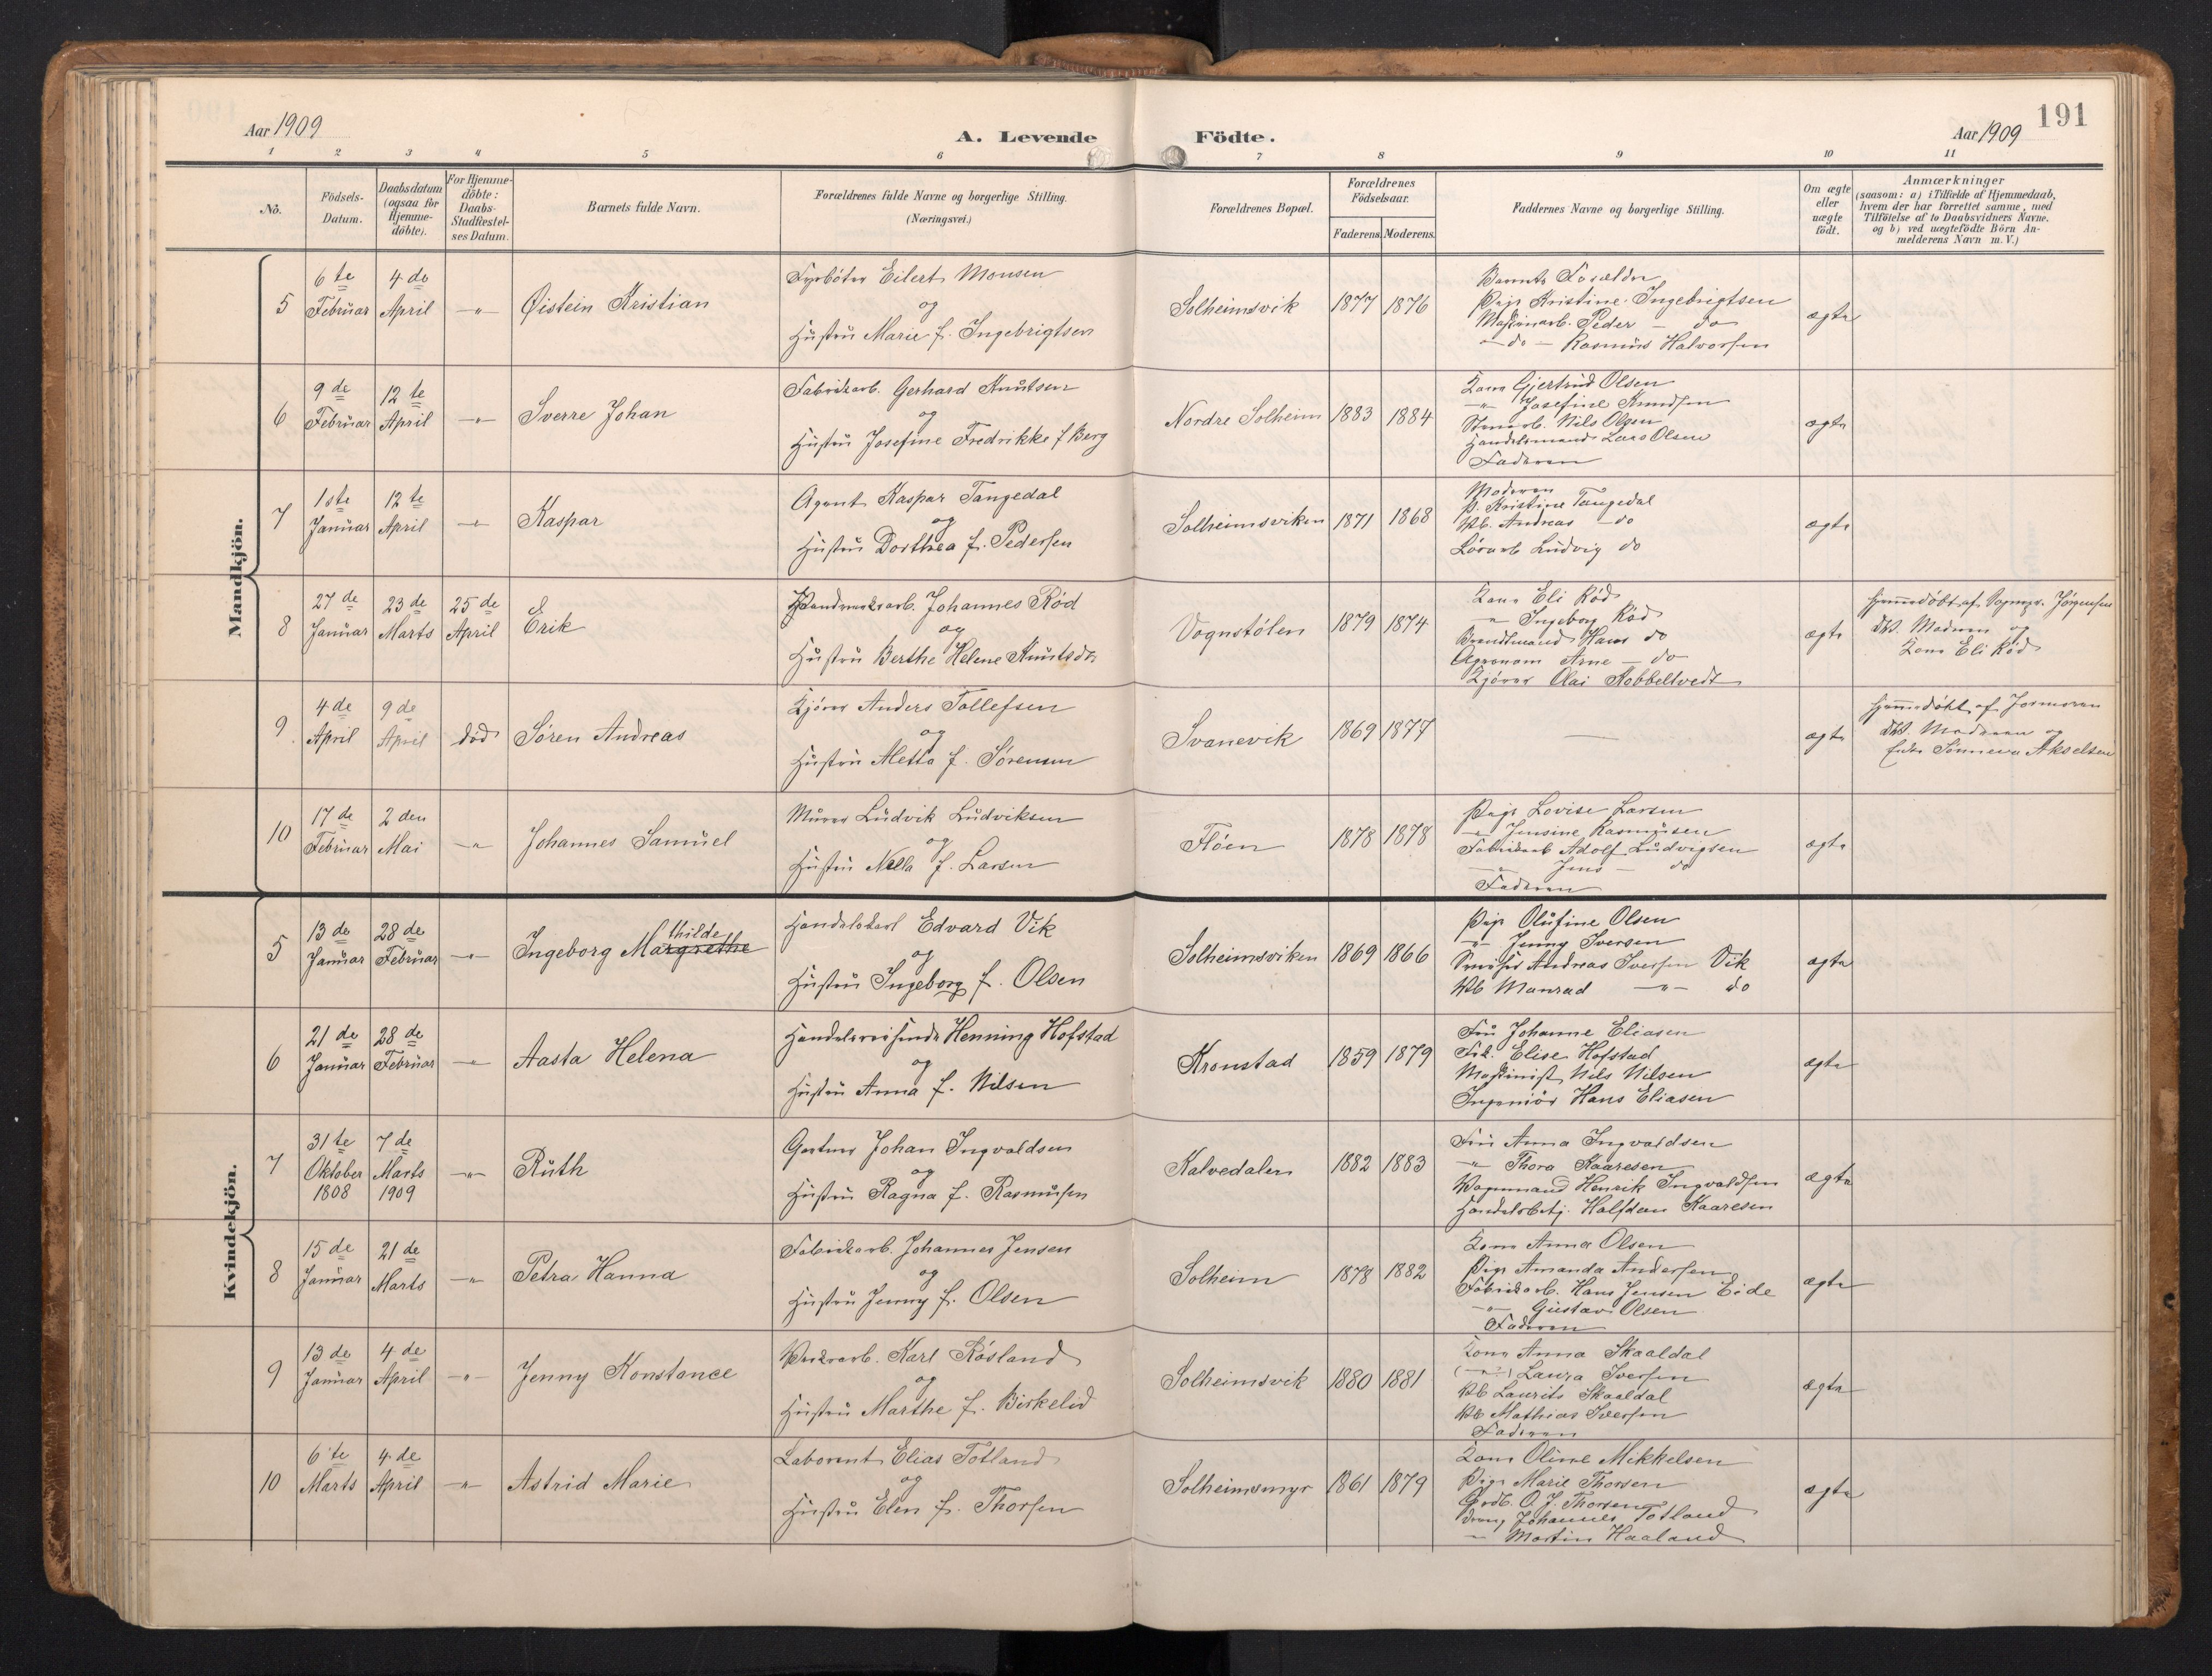 Aar 1909
A. Levende Födte.
Aar 1909
191
1 2 3 4 5 6 7 8 9 10 11
No.
Födsels-
Datum.
Daabsdatum
(ogsaa for
Hjemme-
döbte).
For Hjemme-
döbte:
Daabs-
Stadfæstel-
ses Datum.
Barnets fulde Navn.
Forældrenes fulde Navne og borgerlige Stilling.
(Næringsvei.)
Forældrenes Bopæl.
Forældrenes
Födselsaar.
Faderens. Moderens.
Faddernes Navne og borgerlige Stilling.
Om ægte
eller
uægte
födt.
Anmærkninger
(saasom: a) i Tilfælde af Hjemmedaab,
hvem der har forrettet samme, med
Tilföielse af to Daabsvidners Navne.
og b) ved uægtefödte Börn An-
melderens Navn m. V.)
Mandkjön.
5
6te
Februar
4de
April
-"-
Øistein Kristian
Fyrbøter Eilert Monsen
og
Hustru Marie f. Ingebrigtsen
Solheimsvik
1877 1876
Barnets Forældre
Pige Kristine Ingebrigtsen
Maskinarb. Peder - do
- do - Rasmus Halvorsen
ægte
6
9de
Februar
12te
April
-"-
Sverre Johan
Fabrikarb. Gerhard Knutsen
og
Hustru Josefine Fredrikke f Berg
Nordre Solheim
1883 1884
Kone Gjertrud Olsen
-"- Josefine Knudsen
Nils Olsen
Handelsmand Lars Olsen
Faderen
ægte
7
1ste
Januar
12te
April
-"-
Kaspar
Agent Kaspar Tangedal
og
Hustru Dorthea f. Pedersen
Solheimsviken
1871 1868
Moderen
P. Kristine Tangedal
Uk. Andreas - do
Ludvig do
ægte
8
27de
Januar
23de
Marts
25de
April
Erik
Johannes Rød
og
Hustru Berthe Helene Knutsdr
Vognstølen
1879 1874
Kone Eli Rød
-"- Ingeborg Rød
Brandtmand Hans do
Agronom Arne - do
Kjører Olai Kobbeltvedt
ægte
Hjemmedøbt af Sognepr. Jørgensen
DV. Moderen og
Kone Eli Rød
9
4de
April
9de
April
død
Søren Andreas
Kjører Anders Tollefsen
og
Hustru Metta f. Sørensen
Svanevik
1869 1877
—
ægte
Hjemmedøbt af Jormoren
DV. Moderen og
Enke Sønneva Akselsen
10
17de
Februar
2den
Mai
-"-
Johannes Samuel
Murer Ludvik Ludviksen
og
Hustru Nella f. Larsen
Fløen
1878 1878
Pige Lovise Larsen
-"- Jensine Rasmusen
Fabrikarb Adolf Ludvigsen
-"- Jens - do
Faderen
ægte
Kvindekjön.
5
13de
Januar
28de
Februar
-"-
thilde
Ingeborg Margrethe
Handelskarl Edvard Vik
og
Hustru Ingeborg f. Olsen
Solheimsviken
1869 1866
Pige Olufine Olsen
-"- Jenny Iversen
Andreas Iversen Vik
Uk Monrad -"- do
ægte
6
21de
Januar
28de
Februar
-"-
Aasta Helena
Handelsreisende Henning Hofstad
og
Hustru Anna f. Nilsen
Kronstad
1859 1879
Fru Johanne Eliasen
Frk. Elise Hofstad
Maskinist Nils Nilsen
Ingeniør Hans Eliasen
ægte
7
31te
Oktober
1808
7de
Marts
1909
-"-
Ruth
Gartner Johan Ingvaldsen
og
Hustru Ragna f. Rasmussen
Kalvedalen
1882 1883
Fru Anna Ingvaldsen
-"- Thora Kaaresen
Vognmand Henrik Ingvaldsen
Handelsbetj. Halfdan Kaaresen
ægte
8
15de
Januar
21de
Marts
-"-
Petra Hanna
Fabrikarb. Johannes Jensen
og
Hustru Jenny f. Olsen
Solheim
1878 1882
Kone Anna Olsen
Pige Amanda Andersen
Fabrikarb. Hans Jensen Eide
-"- Gustav Olsen
Faderen
ægte
9
13de
Januar
4de
April
-"-
Jenny Konstance
Verksarb. Karl Røsland
og
Hustru Marthe f. Birkelid
Solheimsvik
1880 1881
Kone Anna Skaaldal
(-"-) Laura Iversen
Uk Laurits Skaaldal
Uk Mathias Iversen
Faderen
ægte
10
6te
Marts
4de
April
-"-
Astrid Marie
Laborent Elias Totland
og
Hustru Elen f. Thorsen
Solheimsmyr
1861 1879
Kone Oline Mikkelsen
Pige Marie Thorsen
Grdb. O. J. Thorsen
Dreng Johannes Totland
-"- Martin Haaland
ægte